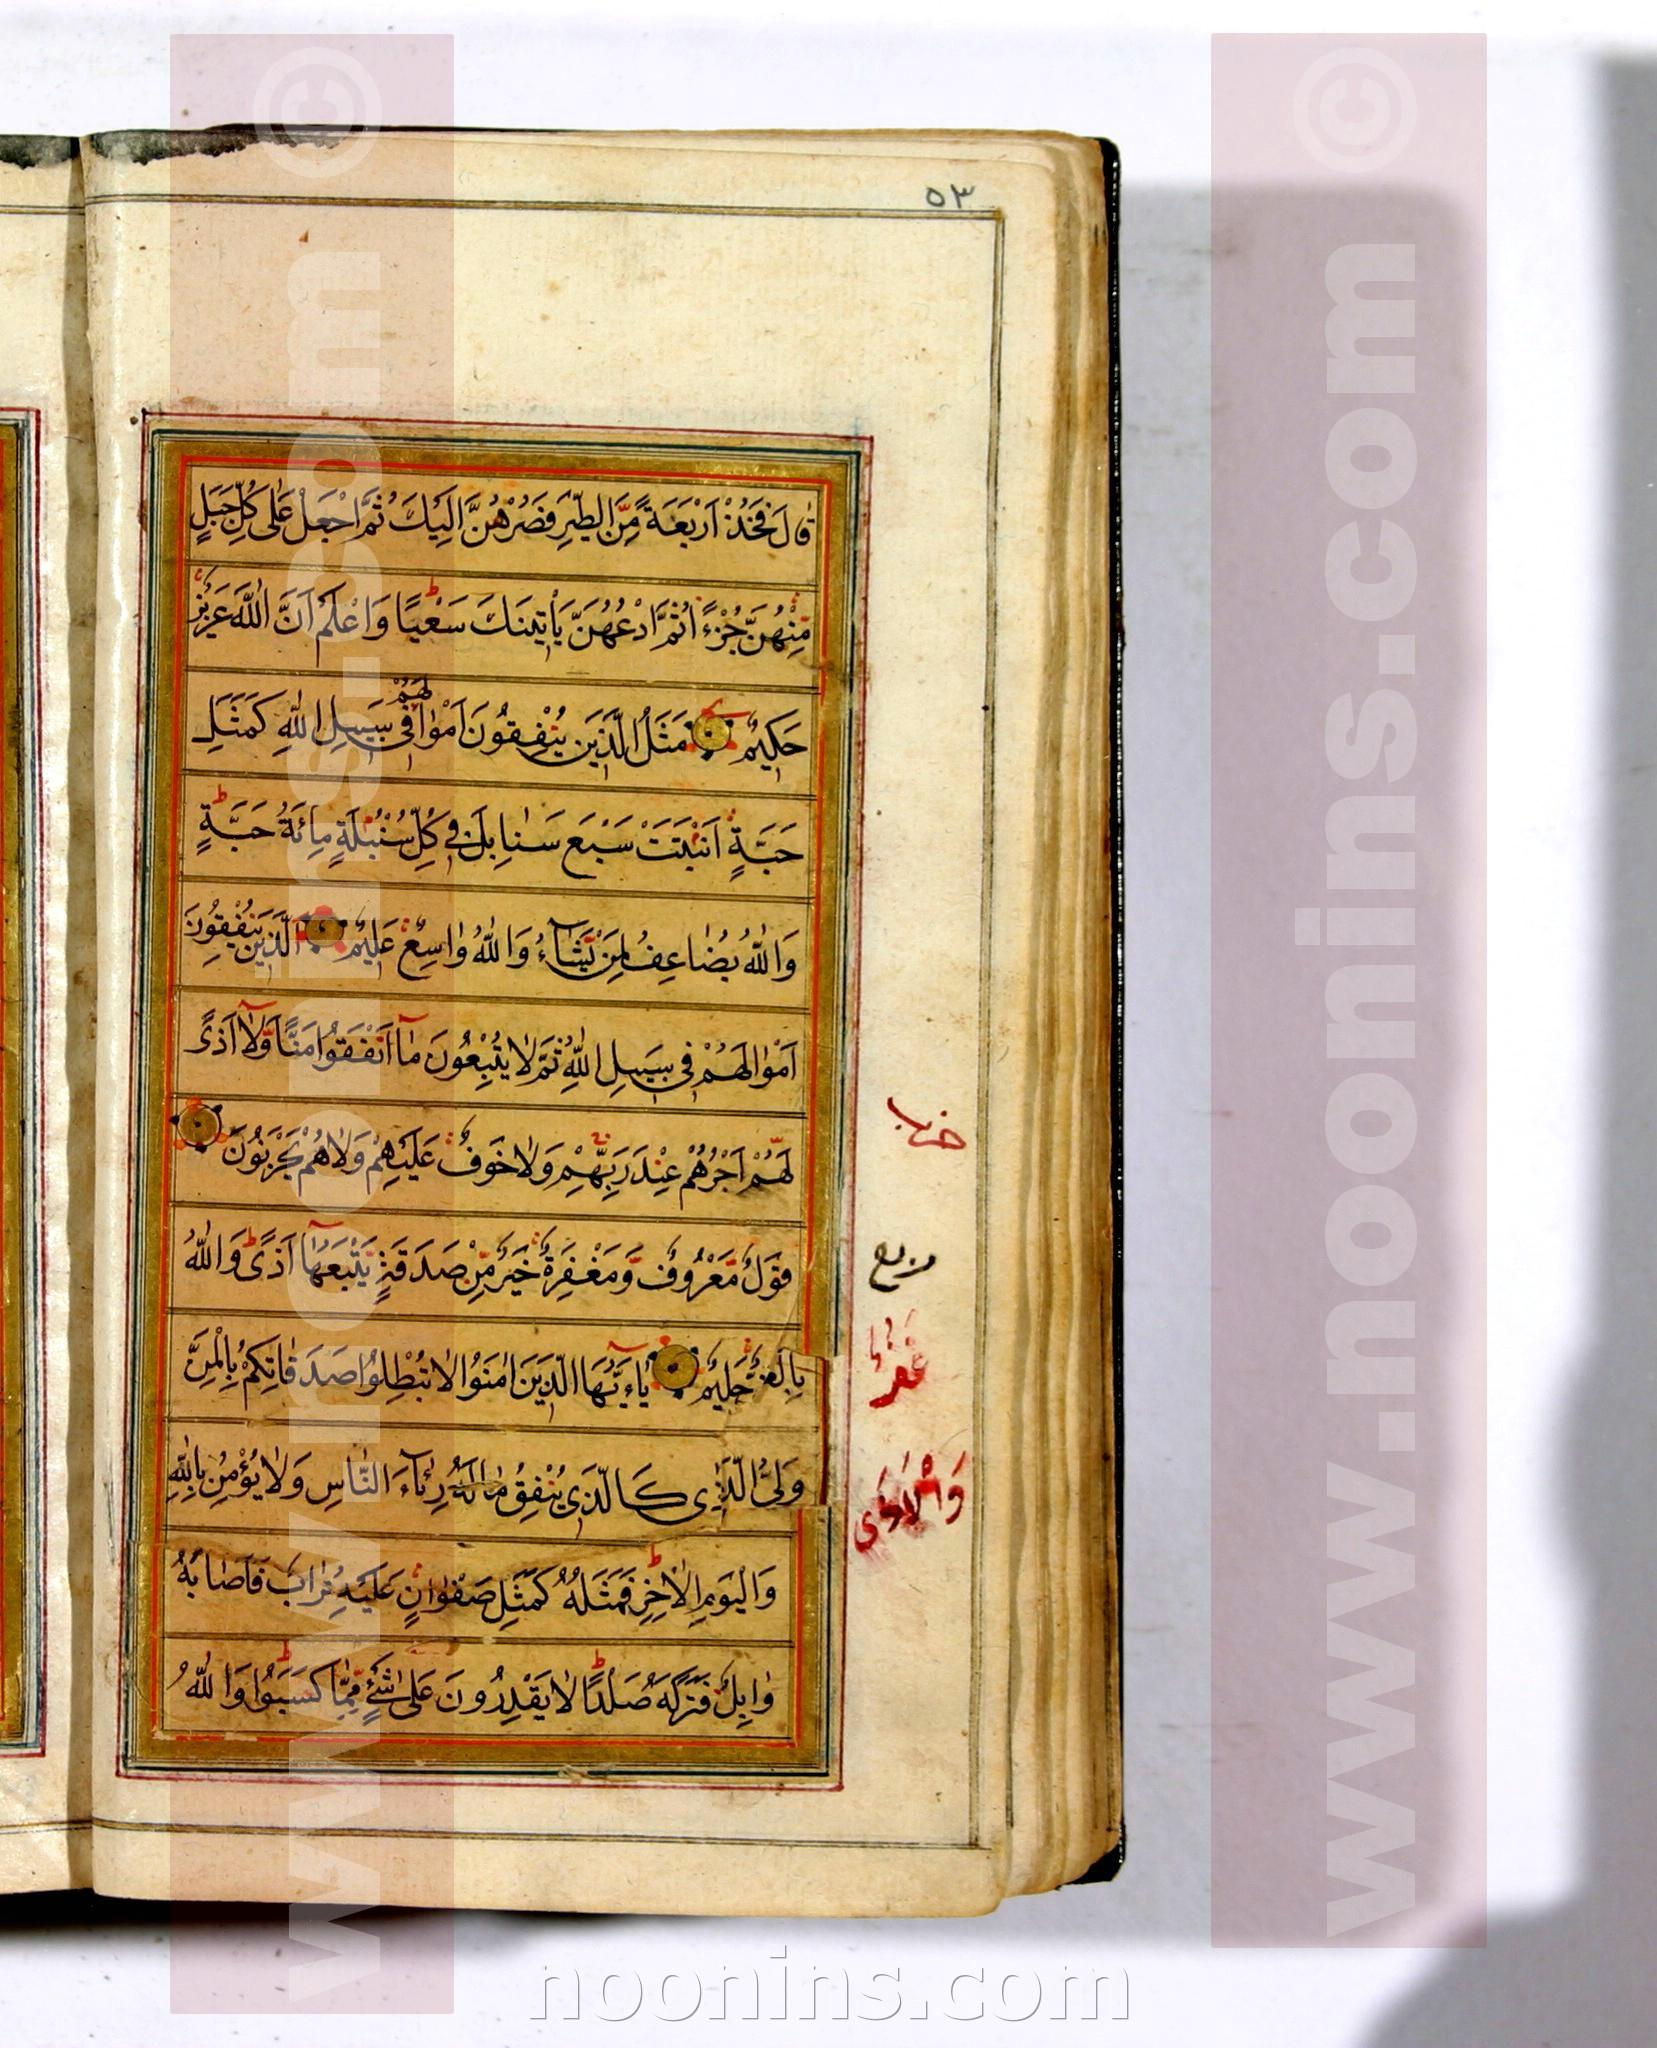 ٥٣
قَالَ فَخُذْ اَرْبَعَةً مِّنَ الطَّيْرِ فَصُرْهُنَّ اِلَيْكَ ثُمَّ اجْعَلْ عَلٰى كُلِّ جَبَلٍ
مِّنْهُنَّ جُزْءًا ثُمَّ ادْعُهُنَّ يَاْتِينَكَ سَعْيًا وَاعْلَمْ اَنَّ اللّٰهَ عَزِيزٌ
حَكِيمٌ مَثَلُ الَّذِينَ يُنْفِقُونَ اَمْوٰالَهُمْ فِى سَبِيلِ اللّٰهِ كَمَثَلِ
حَبَّةٍ اَنْبَتَتْ سَبْعَ سَنٰابِلَ فِى كُلِّ سُنْبُلَةٍ مِائَةُ حَبَّةٍ
وَاللّٰهُ يُضٰاعِفُ لِمَنْ يَشَآءُ وَاللّٰهُ وٰاسِعٌ عَلِيمٌ اَلَّذِينَ يُنْفِقُونَ
اَمْوٰالَهُمْ فِى سَبِيلِ اللّٰهِ ثُمَّ لٰا يُتْبِعُونَ مٰا اَنْفَقُوا مَنًّا وَلٰا اَذًى
لَهُمْ اَجْرُهُمْ عِنْدَ رَبِّهِمْ وَلٰا خَوْفٌ عَلَيْهِمْ وَلٰا هُمْ يَحْزَنُونَ
قَوْلٌ مَّعْرُوفٌ وَّمَغْفِرَةٌ خَيْرٌ مِّنْ صَدَقَةٍ يَّتْبَعُهَا اَذًى وَاللّٰهُ
حَلِيمٌ يٰاءَيُّهَا الَّذِينَ اٰمَنُوا لٰا تُبْطِلُوا صَدَقٰاتِكُمْ بِالْمَنِّ
كَالَّذِى يُنْفِقُ مٰالَهُ رِئٰآءَ النّٰاسِ وَلٰا يُؤْمِنُ بِاللّٰهِ
وَالْيَوْمِ الْاٰخِرِ فَمَثَلُهُ كَمَثَلِ صَفْوٰانٍ عَلَيْهِ تُرٰابٌ فَاَصٰابَهُ
وٰابِلٌ فَتَرَكَهُ صَلْدًا لٰا يَقْدِرُونَ عَلٰى شَيْءٍ مِّمّٰا كَسَبُوا وَاللّٰهُ
حزب
ربع
وَالْاَذٰى
www.noonins.com ©
www.noonins.com ©
noonins.com